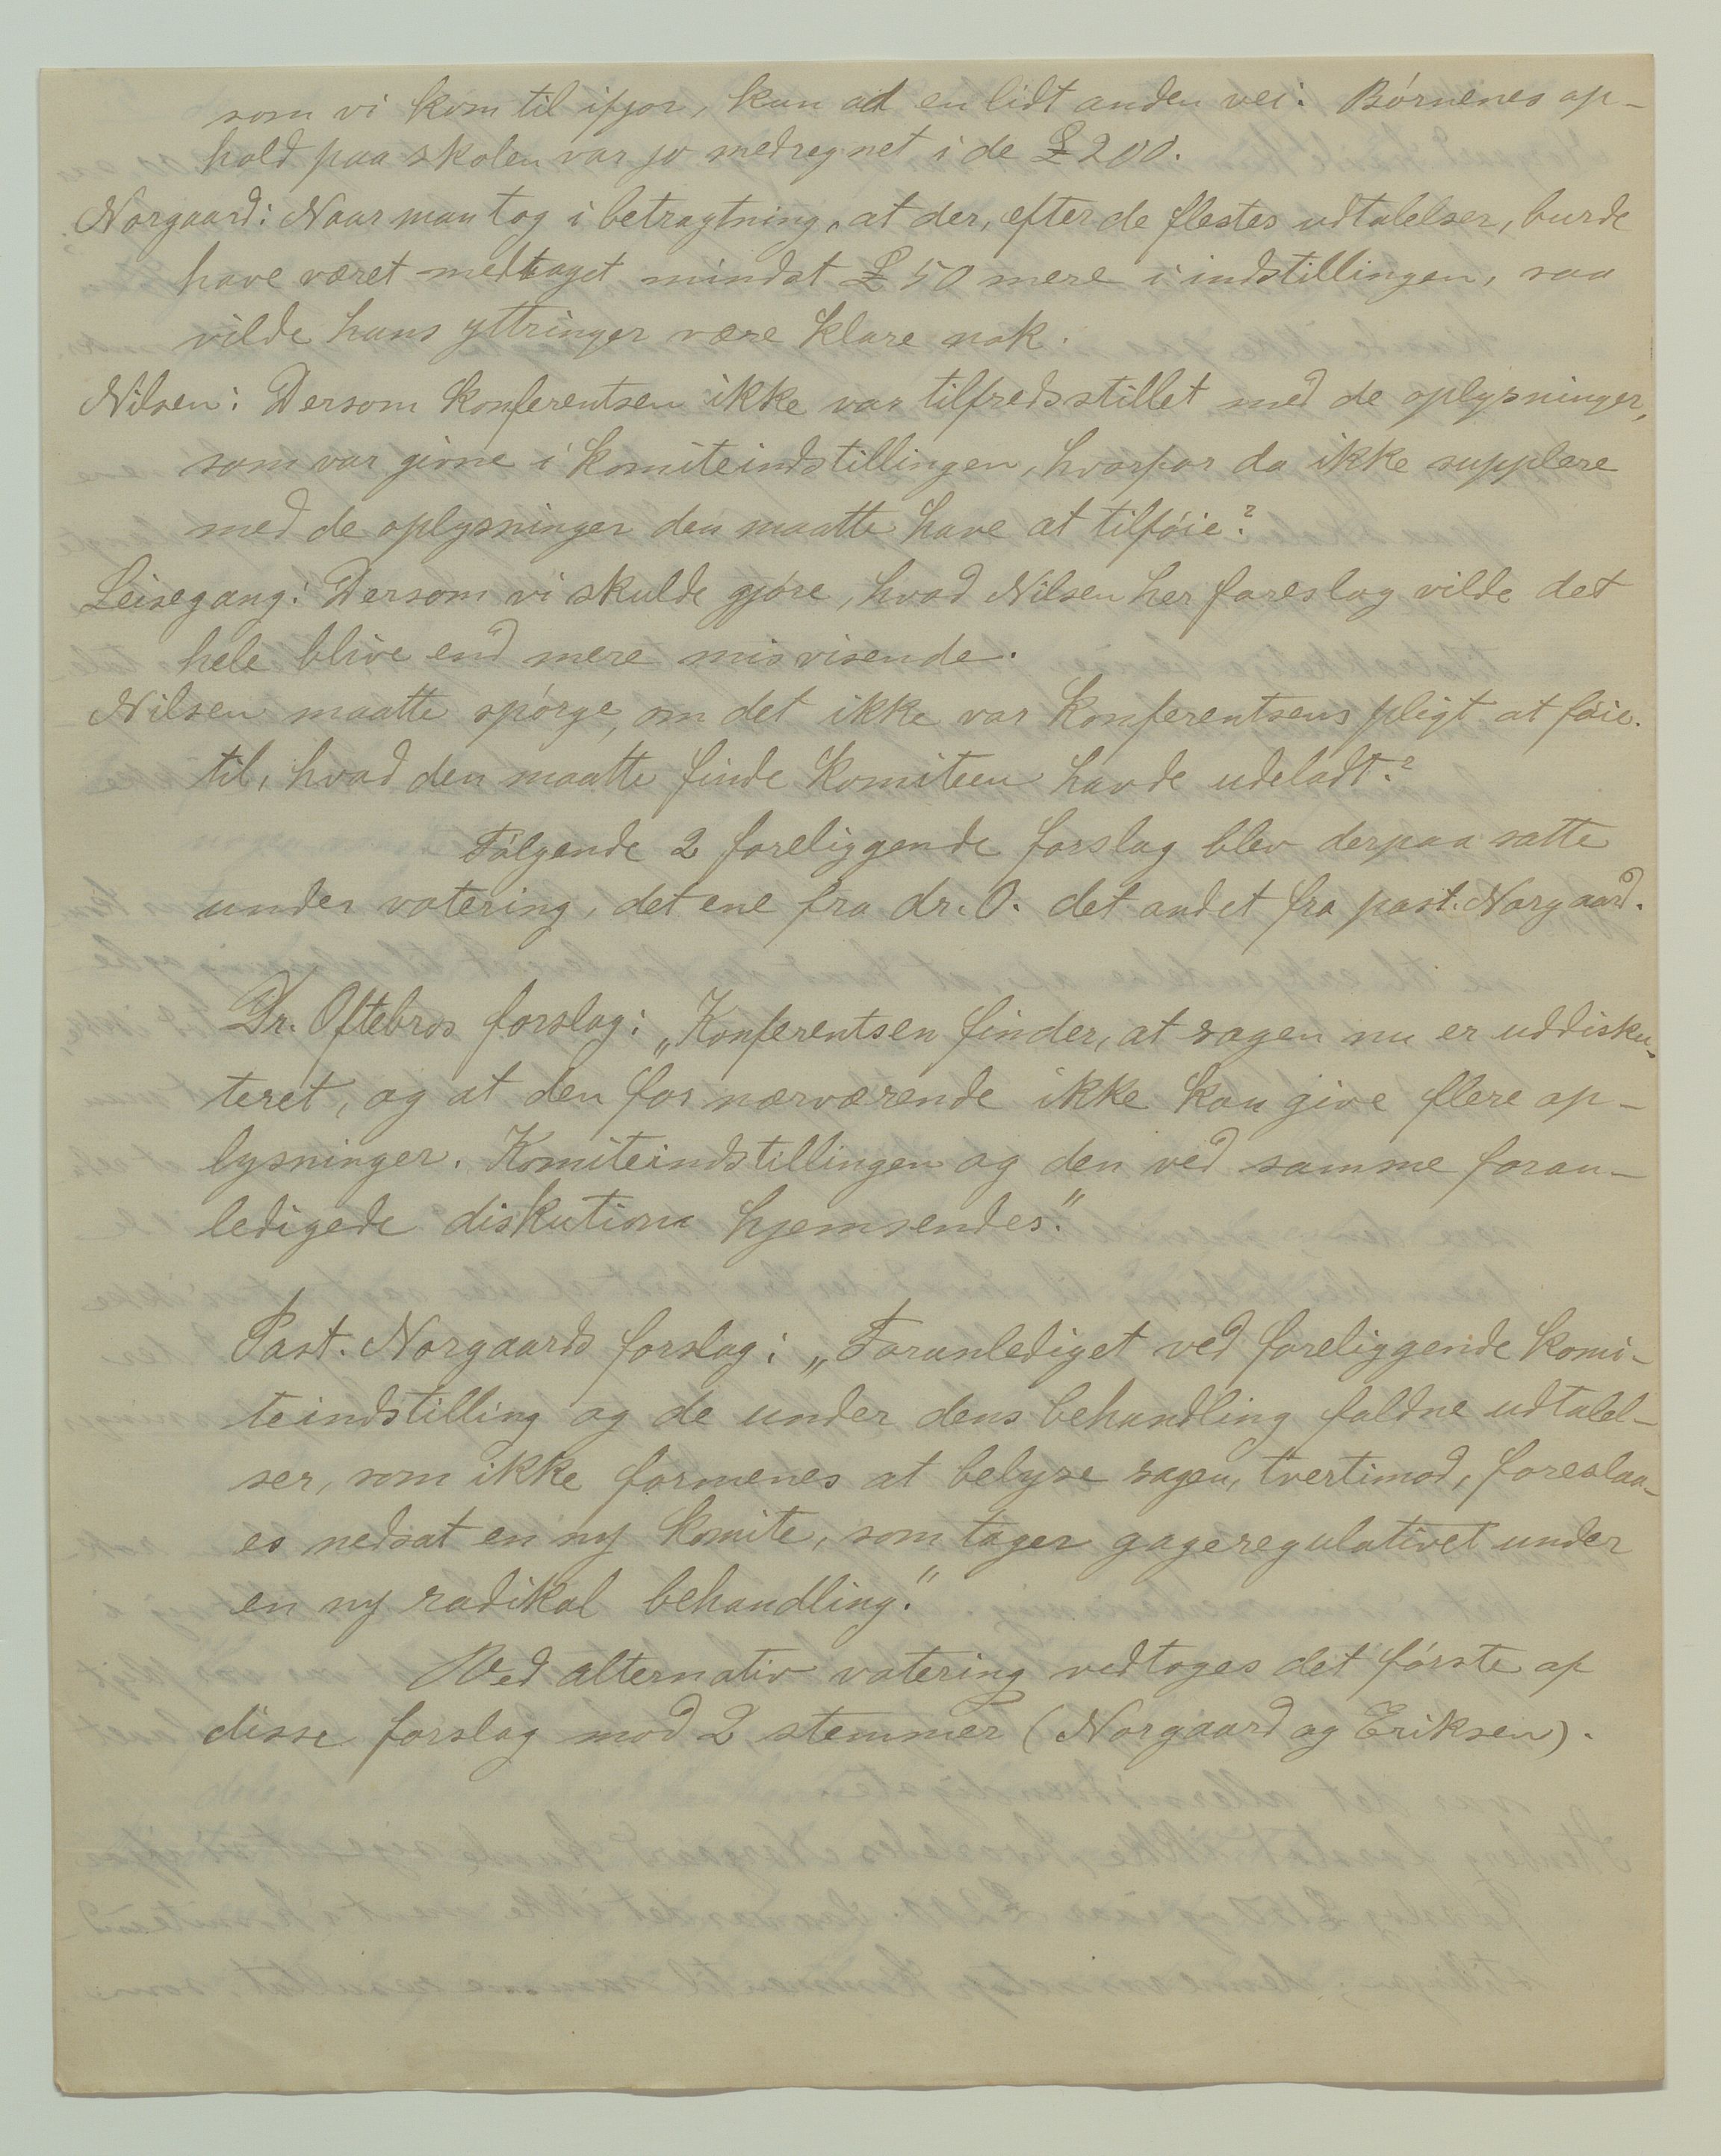 som vi kom til ifjor, kun ad en lidt anden vei: Børnenes op-
hold paa skolen var jo medregnet i de £200.
Norgaard: Naar man tog i betragtning, at der, efter de flestes udtalelser, burde
have været medtaget mindst £50 mere i indstillingen, saa
vilde hans yttringer være klare nok.
Nilsen: Dersom Konferentsen ikke var tilfredsstillet med de oplysninger,
som var givne i Komiteindstillingen, hvorfor da ikke supplere
med de oplysninger den maatte have at tilføie?
Leisegang: Dersom vi skulde gjøre, hvad Nilsen her foreslog vilde det
hele blive end mere misvisende.
Nilsen maatte spørge, om det ikke var Konferentsens pligt at føie
til, hvad den maatte finde Komiteen havde udeladt?
Følgende 2 foreliggende forslag blev derpaa satte
under votering, det ene fra dr. O. det andet fra past. Norgaard.
Dr. Oftebros forslag: „Konferentsen finder, at sagen nu er uddisku-
teret, og at den for nærværende ikke kan give flere op-
lysninger. Komiteindstillingen og den ved samme foran-
ledigede diskution hjemsendes."
Past. Norgaards forslag: „Foranlediget ved foreliggende Komi-
teindstilling og de under dens behandling faldne udtalel-
ser, som ikke formenes at belyse sagen, tvertimod, foreslaa-
es nedsat en ny Komite, som tager gageregulativet under
en ny radikal behandling."
Ved alternativ votering vedtoges det første af
disse forslag mod 2 stemmer (Norgaard og Eriksen).